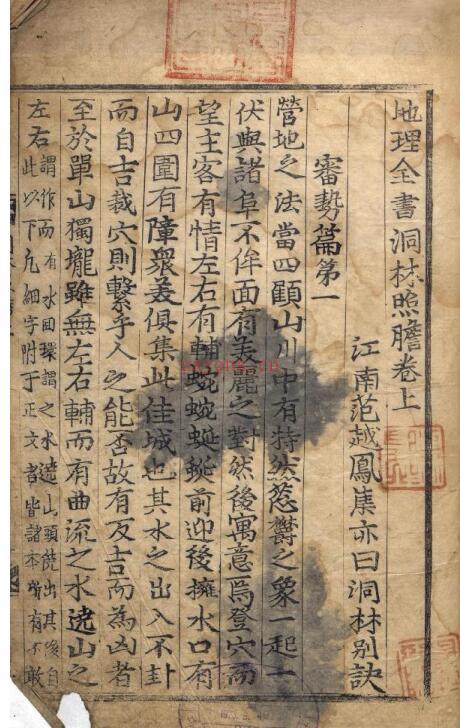 地理全書洞林照膽卷上
江南范越鳳集亦曰洞林別訣
審勢篇第一
營地之法當四顧山川中有特然葱欝之象一起一
伏與諸阜不侔面有美麗之對然後寓意焉登穴而
望主客有情左右有輔蜿蜿蜒蜒前迎後擁水口有
山四圍有障衆美俱集此佳城也其水之出入不卦
而自吉裁穴則繫乎人之能否故有反吉而為凶者
至於單山獨壠雖無左右輔而有曲流之水遶山之
左右謂作而有水回環謂之水遶山頭饒出其後自
此以下凡細字附于正文者皆諸本所有不敢
nayona.cn